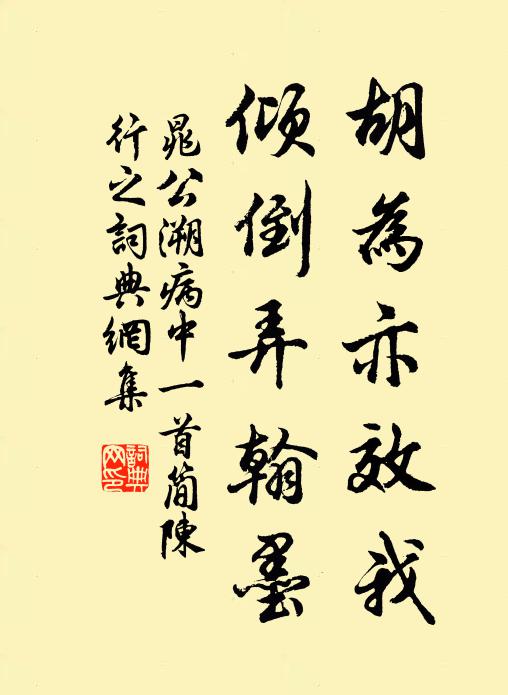 胡為亦效我
傾倒弄翰墨
晁公溯病中一首簡陳
行之詞典網集
詞典
网印